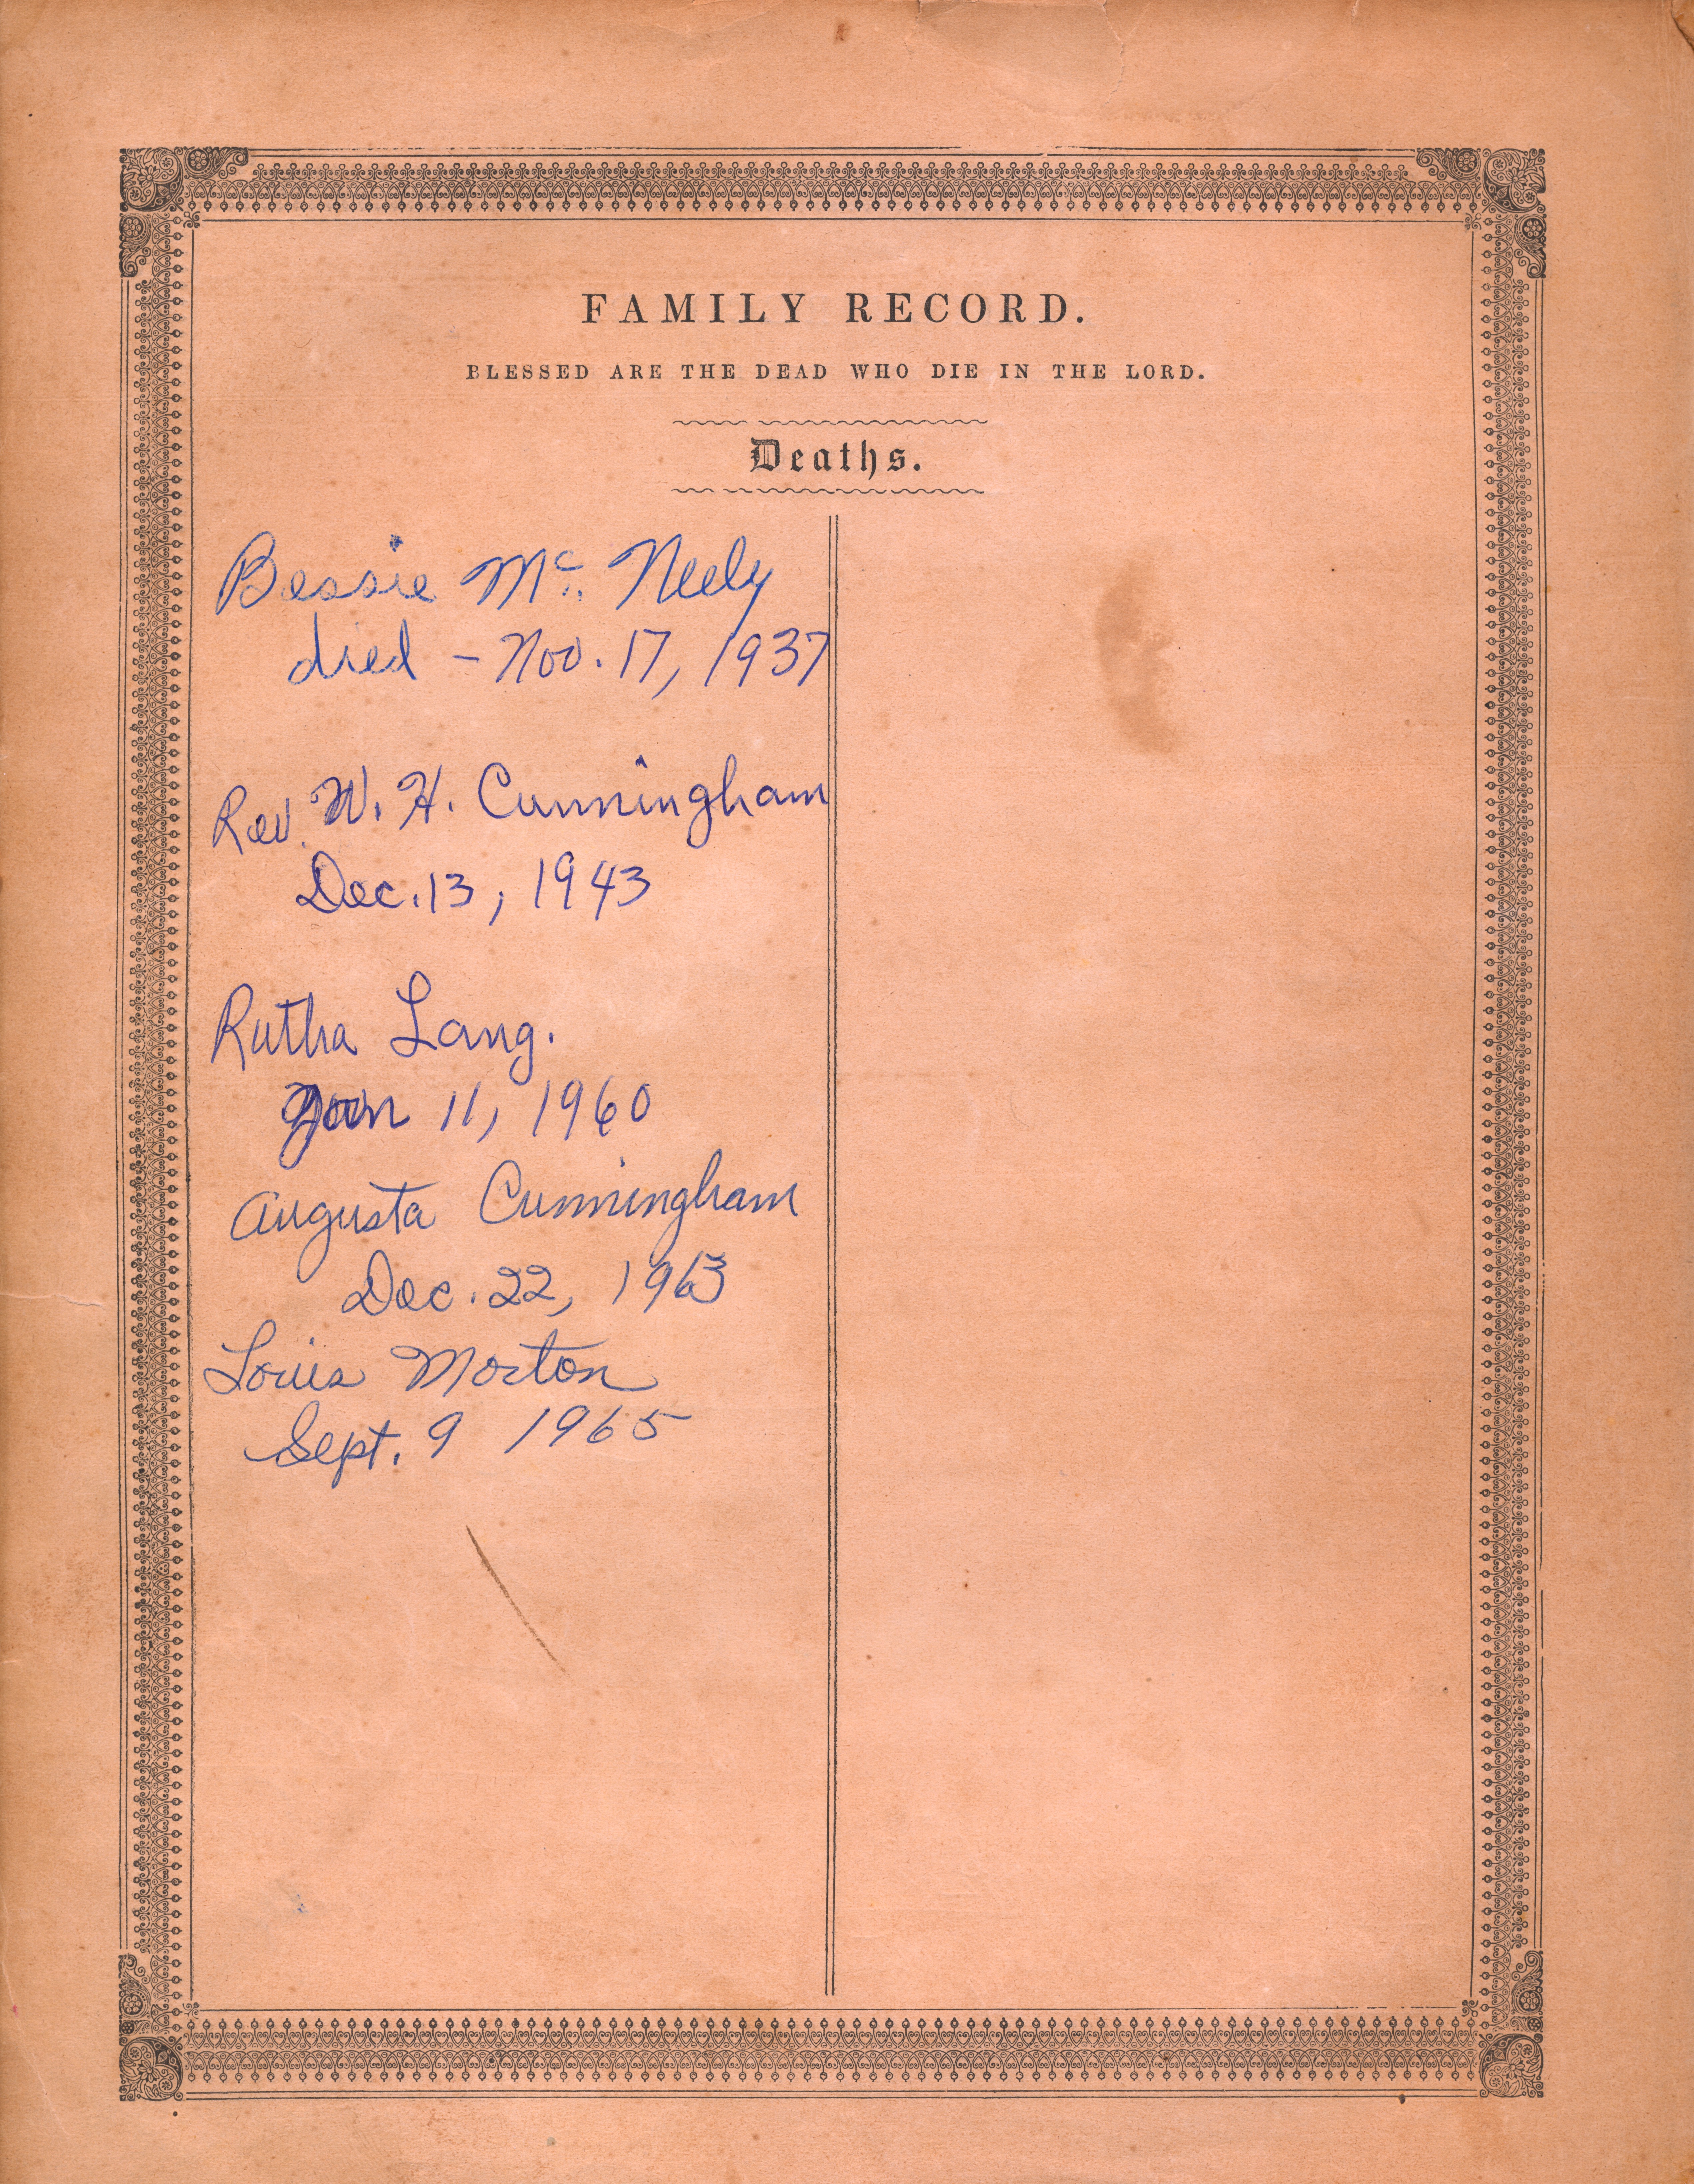 FAMILY RECORD.
BLESSED ARE THE DEAD WHO DIE IN THE LORD.
Deaths.
Bessie Mc. Neely
died - Nov. 17, 1937
Rev. W. H. Cunningham
Dec. 13, 1943
Rutha Lang.
Jan 11, 1960
Augusta Cunningham
Dec. 22, 1963
Louis Morton
Sept. 9 1965